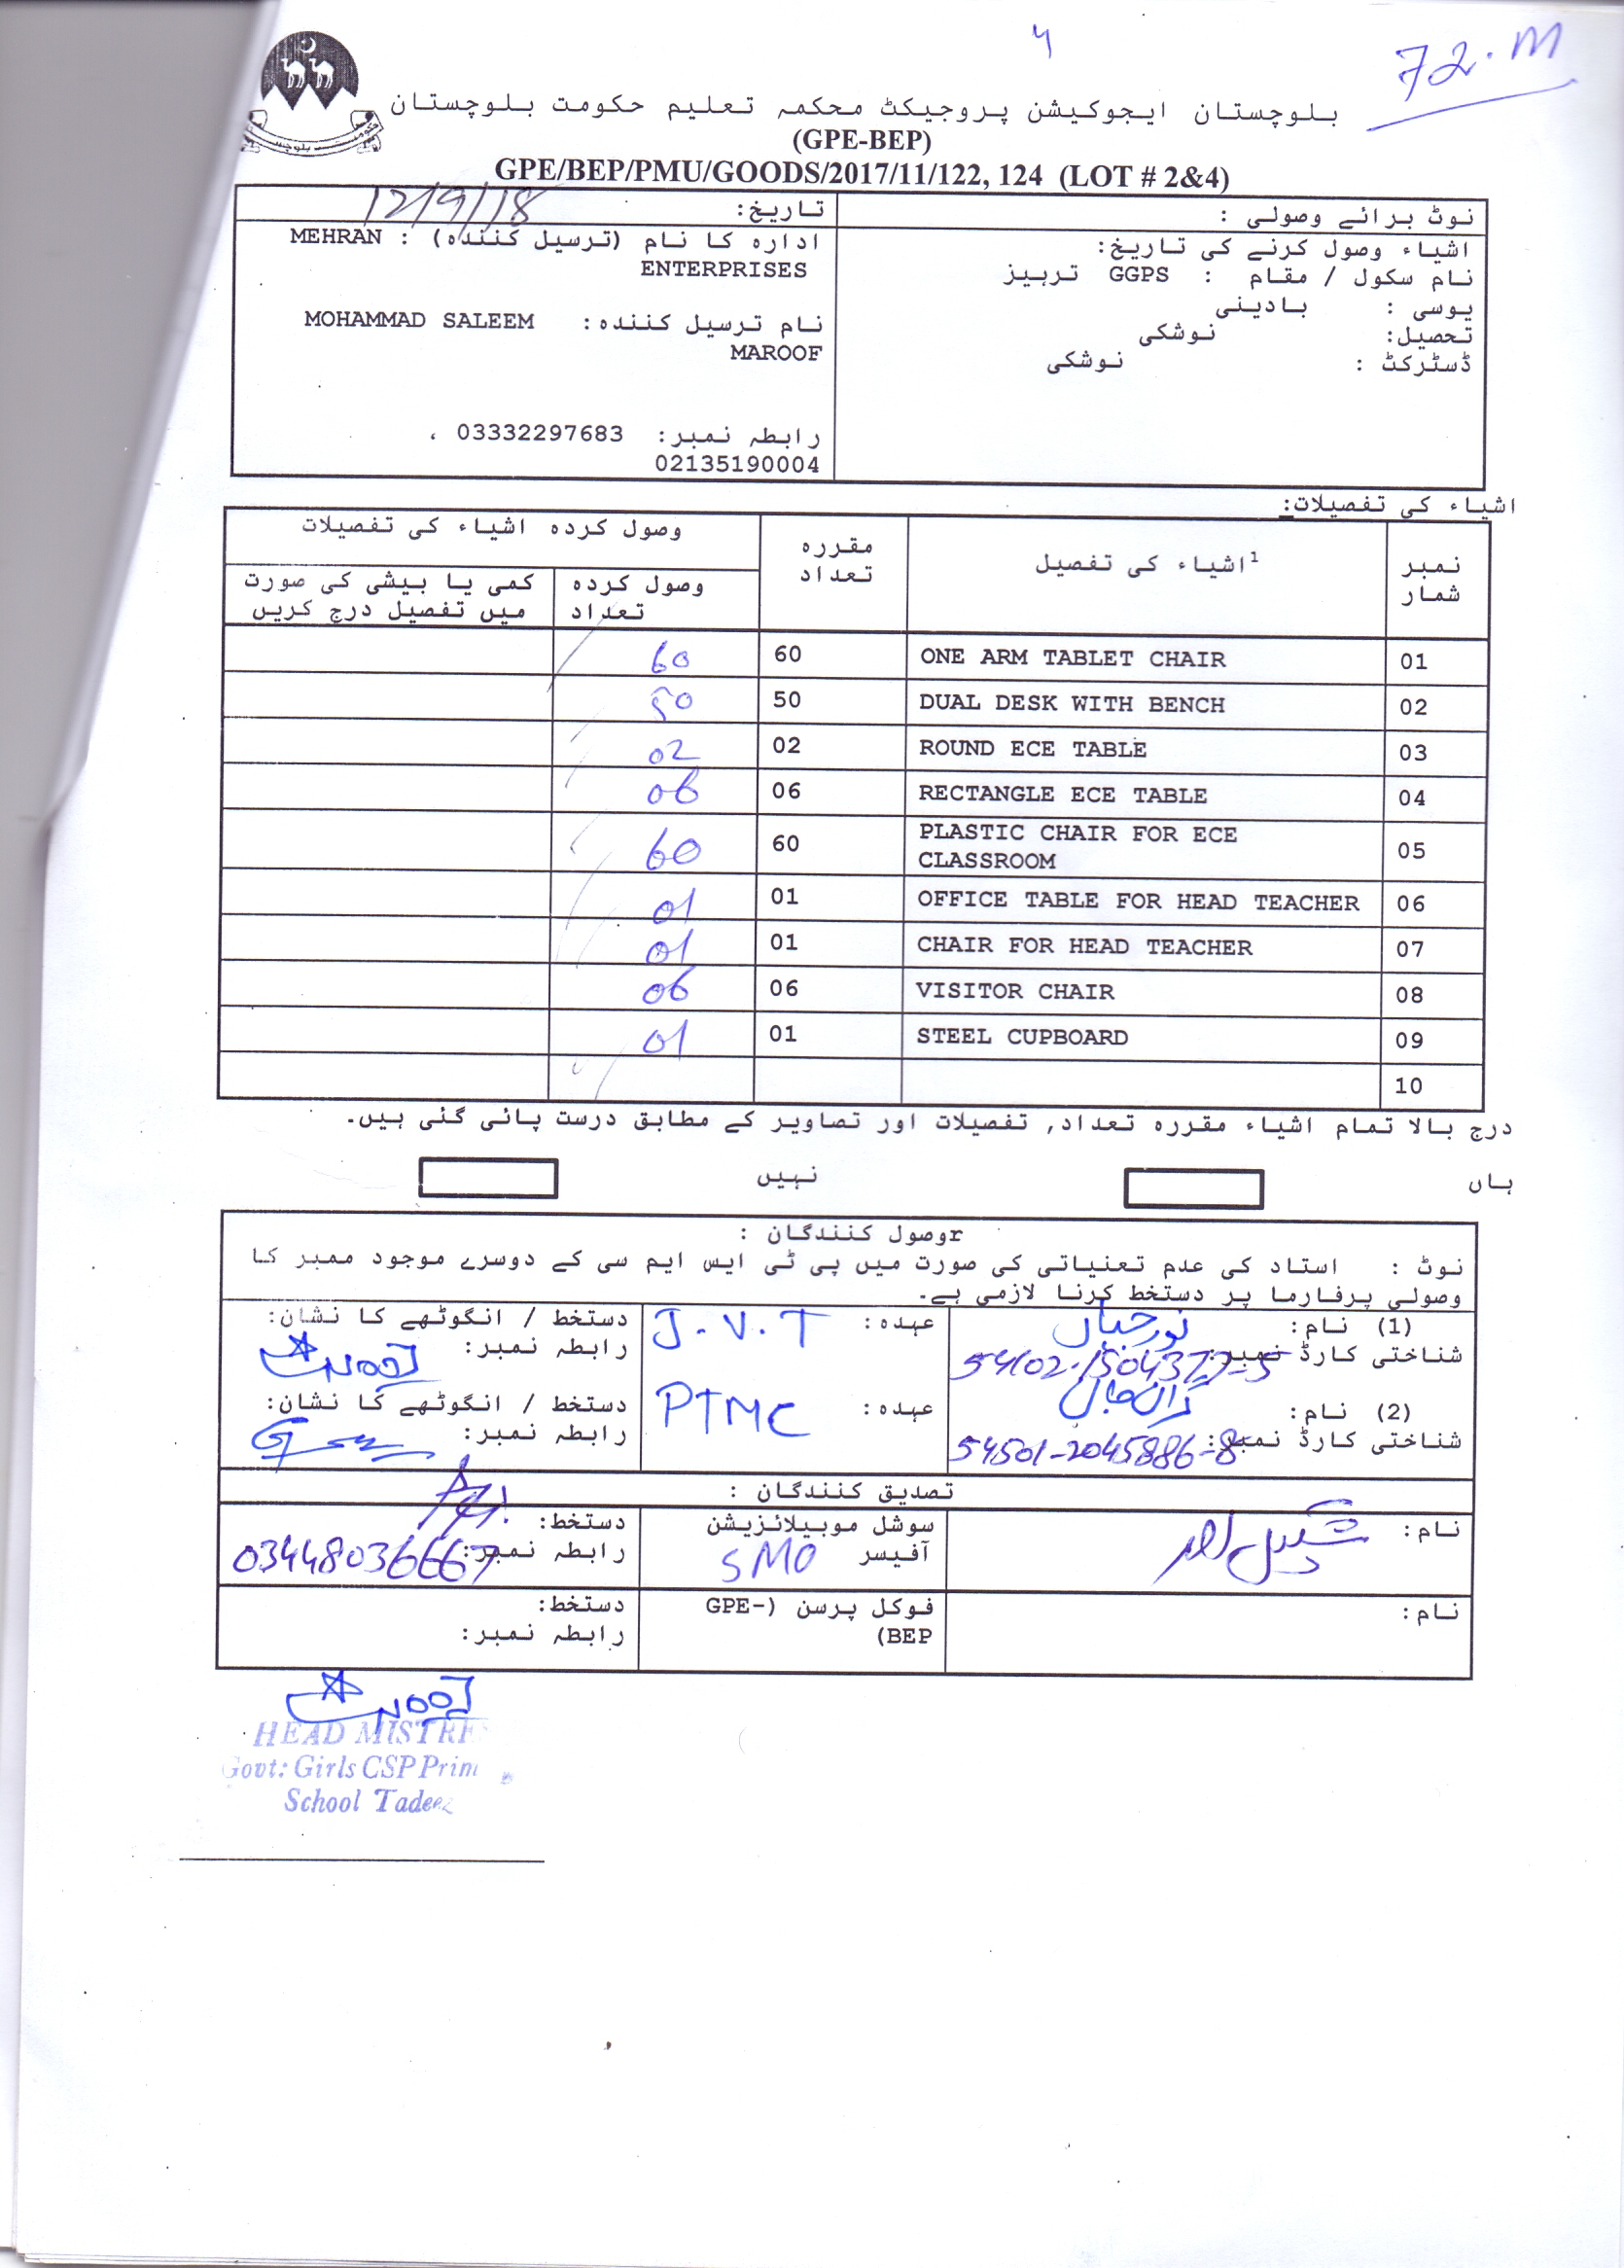 4
72.M
بلوچستان ایجوکیشن پروجیکٹ محکمہ تعلیم حکومت بلوچستان
(GPE-BEP)
GPE/BEP/PMU/GOODS/2017/11/122, 124 (LOT # 2&4)
نوٹ برائے وصولی :
اشیاء وصول کرنے کی تاریخ:
نام سکول / مقام : GGPS تربیز
یوسی : بادینی
تحصیل: نوشکی
ڈسٹرکٹ : نوشکی
تاریخ: 12/9/18
ادارہ کا نام (ترسیل کنندہ) : MEHRAN
ENTERPRISES
نام ترسیل کنندہ: MOHAMMAD SALEEM
MAROOF
رابطہ نمبر: 03332297683 ،
02135190004
اشیاء کی تفصیلات:
نمبر شمار 1اشیاء کی تفصیل مقررہ تعداد وصول کردہ اشیاء کی تفصیلات
وصول کردہ تعداد کمی یا بیشی کی صورت میں تفصیل درج کریں
01 ONE ARM TABLET CHAIR 60 60
02 DUAL DESK WITH BENCH 50 50
03 ROUND ECE TABLE 02 02
04 RECTANGLE ECE TABLE 06 06
05 PLASTIC CHAIR FOR ECE CLASSROOM 60 60
06 OFFICE TABLE FOR HEAD TEACHER 01 01
07 CHAIR FOR HEAD TEACHER 01 01
08 VISITOR CHAIR 06 06
09 STEEL CUPBOARD 01 01
10
درج بالا تمام اشیاء مقررہ تعداد, تفصیلات اور تصاویر کے مطابق درست پائی گئی ہیں۔
ہاں نہیں
rوصول کنندگان :
نوٹ : استاد کی عدم تعنیاتی کی صورت میں پی ٹی ایس ایم سی کے دوسرے موجود ممبر کا
وصولی پرفارما پر دستخط کرنا لازمی ہے۔
(1) نام: نور جہاں عہدہ: J.V.T دستخط / انگوٹھے کا نشان:
شناختی کارڈ نمبر: 54102-1504377-5 رابطہ نمبر:
(2) نام: عہدہ: PTMC دستخط / انگوٹھے کا نشان:
شناختی کارڈ نمبر: 54501-2045886-8 رابطہ نمبر:
تصدیق کنندگان :
نام: شکیل احمد سوشل موبیلائزیشن دستخط:
آفیسر SMO رابطہ نمبر: 03448036667
نام: فوکل پرسن (GPE- دستخط:
BEP) رابطہ نمبر:
Noor
HEAD MISTRE
Govt: Girls CSP Prim
School Tadeez